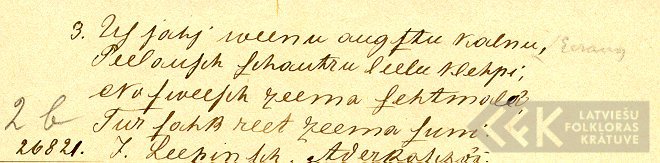 3. Us jahj weenu augstu kalnu,
Peelausch schautru leelu klehpi;
No sweesch zeema sehtmalâ,
Tur sahk reet zeema suni.
2 b
26821. J. Leepinsch. Aderkaschôs.
LATVIEŠU
FOLKLORAS
KRĀTUVE